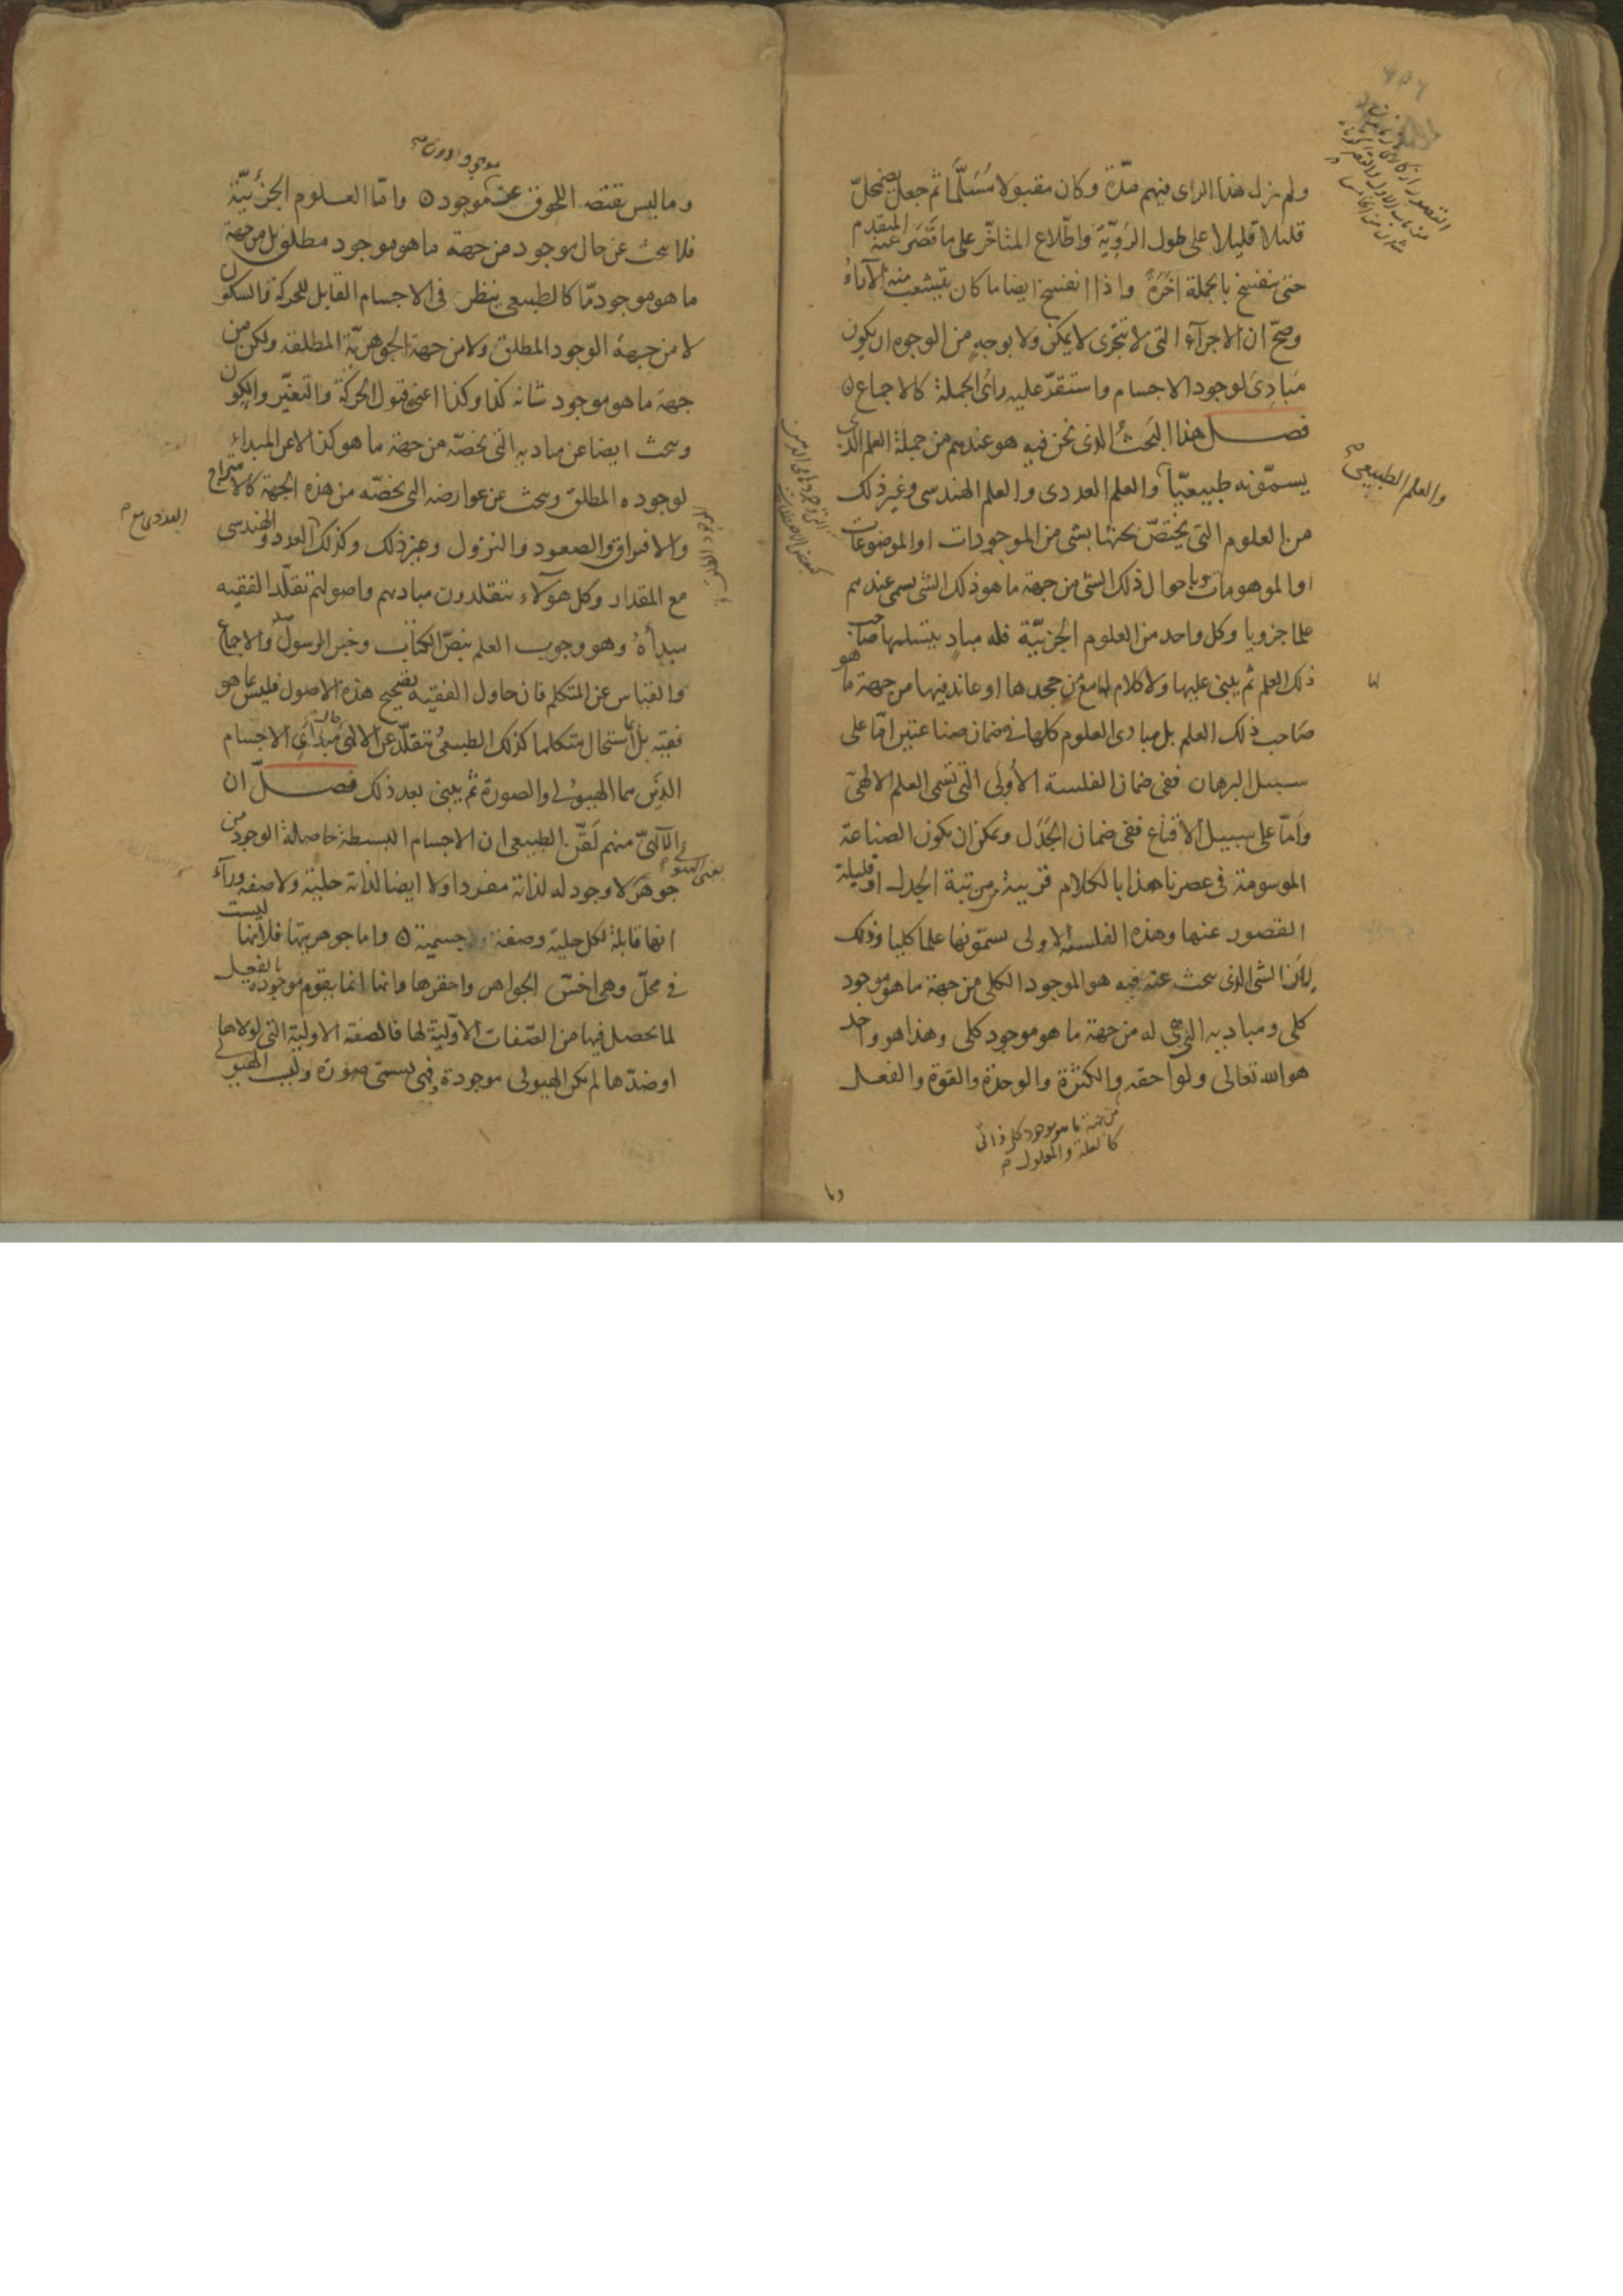 ولم يزل هذا الراى فيهم مدّة وكان مقبولا مُسَلَّمًا ثم جعل يضمحلّ
قليلا قليلا على طول الرَوِيّة واطّلاع المتاخّر على ما قَصَرَ عنه المتقدم
حتى ينفسخ بالجملة آخِرَهُ واذا انفسخ ايضا ما كان يتشعب منه الآراءُ
وصحّ ان الاجزآء التى لا تتجزى لا يمكن ولا بوجهٍ من الوجوه ان يكون
مَبادِىَ لوجود الاجسام واستقرّ عليه رائ الجملة كالاجماع ٥
فصل هذا البَحثُ الذى نحن فيه هو عندهم من جملة العلم الذى
يسمّونه طبيعيّا والعلم العددى والعلم الهندسى وغير ذلك
والعلم الطبيعى
من العلوم التى يختصّ بحثها بشى من الموجودات او الموضوعات
او الموهومات وباحوال ذلك الشى من جهة ما هو ذلك الشى يسمى عندهم
علما جزويا وكل واحد من العلوم الجزئيّة فله مبادٍ يتسلمها صاحب
ذلك العلم ثم يبنى عليها ولا كلام له مع من جحدها او عاند فيها من جهة ما هو
صاحب ذلك العلم بل مبادى العلوم كلها فى ضمان صناعتين امّا على
سبيل البرهان ففى ضمان الفلسفة الأولَى التى تسمى العلم الالهىّ
وامّا على سبيل الاقناع ففى ضمان الجَدَل ويمكن ان يكون الصناعة
الموسومة فى عصرنا هذا بالكلام قريبةً من رتبة الجدل او قليلة
القصور عنها وهذه الفلسفة الاولى يسمّونها علما كليا وذلك
لِاَنّ الشى الذى يبحث عنه فيه هو الموجود الكلى من جهة ما هو موجود
كلى ومباديه التى هى له من جهة ما هو موجود كلى وهذا هو واحد
هو الله تعالى ولواحقه والكثرة والوحدة والقوة والفعل
من جهة ما هو موجود كلى ذاتى
كالعلة والمعلول
وما
وما ليس يقتضه اللحوق عنه موجود ٥ وامّا العلوم الجزئيّة
فلا يبحث عن حال موجود من جهة ما هو موجود مطلق بل من جهة
ما هو موجود مّا كالطبيعى ينظر فى الاجسام القابل للحركة والسكون
لا من جهة الوجود المطلق ولا من جهة الجوهريّة المطلقة ولكن من
جهة ما هو موجود شانه كذا وكذا اعنى قبول الحركة والتغيّر والكون
وبحث ايضا عن مباديه التى تخصّه من جهة ما هو كذا لا عن المبداء
لوجوده المطلق وبحث عن عوارضه التى تخصّه من هذه الجهة كالامتزاج
والافتراق والصعود والنزول وغير ذلك وكذلك العدد والهندسى
العددى مع
مع المقدار وكل هوٓلاء يتقلدون مباديهم واصولهم تقلّد الفقيه
مبدأهُ وهو وجوب العلم بنصّ الكتاب وخبر الرسول والاجماع
والقياس عن المتكلم فان حاول الفقيه تصحيح هذه الاصول فليس بما هو
فقيه بل استحال متكلما كذلك الطبيعىُ يتقلّد عن الالهى مبدأَىِ الاجسام
الذَين هما الهيولى والصورة ثم يبنى بعد ذلك فصل ان
الالٓهىّ منهم لَقّن الطبيعى ان الاجسام البسيطة حاصلة الوجود من
جوهر لا وجود له لذاته مفردا ولا ايضا لذاته حلية ولا صفة ورآء
انها قابلة لكل حلية وصفة جسمية ٥ واما جوهريتها فلأنها ليست
فى محلّ وهى اخسّ الجواهر واحقرها وانها انما يقوم موجودة بالفعل
لما يحصل فيها من الصّفات الاوّليّة لها فالصفة الاولية التى لولاها
او ضدّها لم يكن الهيولى موجودة فهى يسمّى صورة ونسب الهيولى